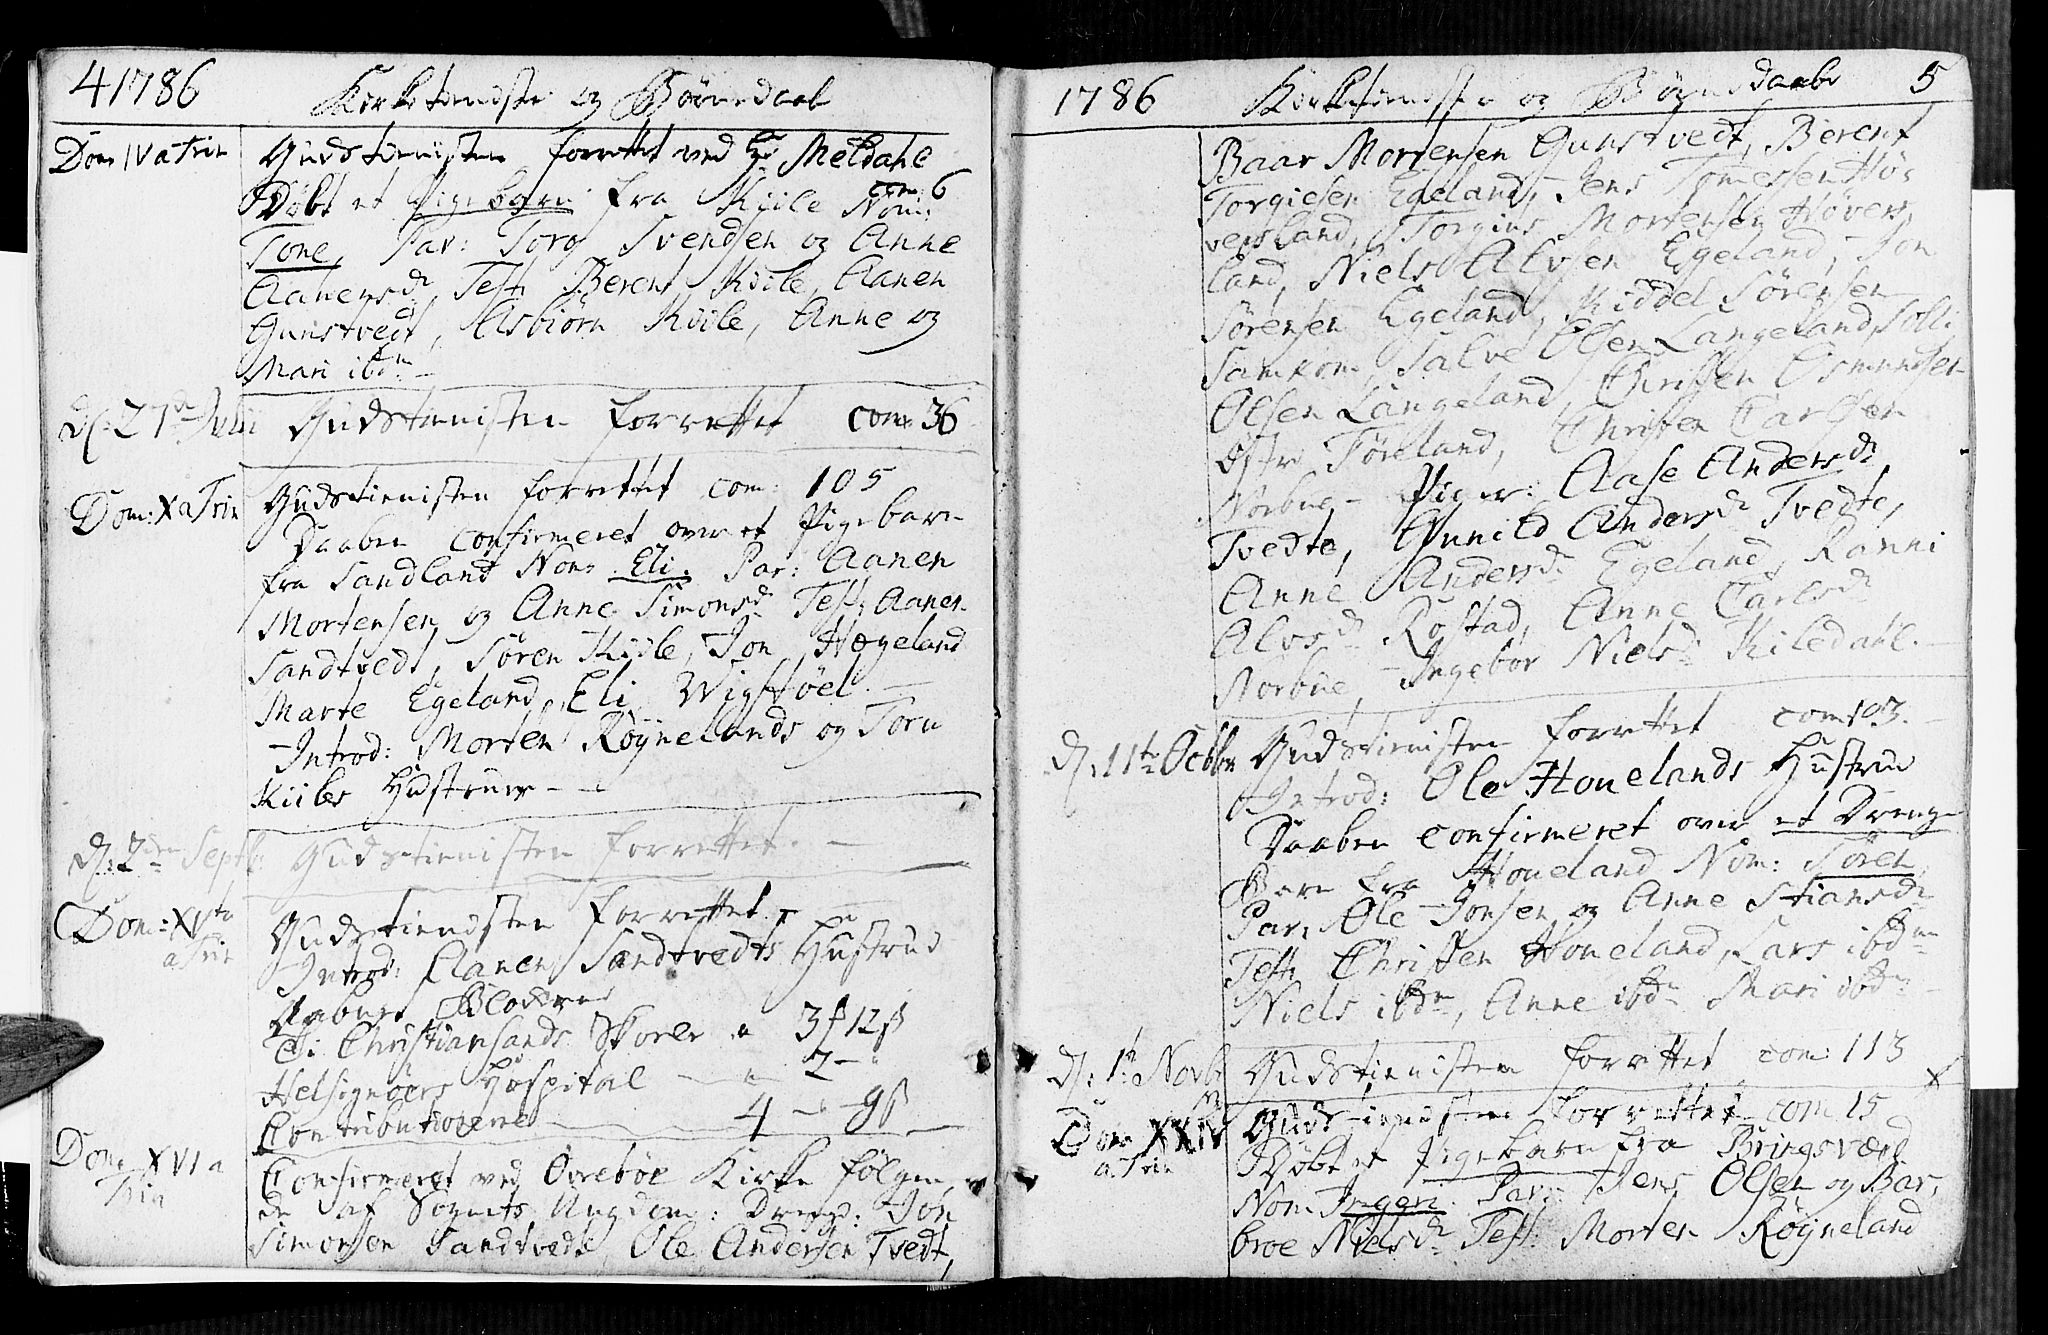 4 1786 Kirketieneste og Børnedaab
Dom IV a Trin Gudstienisten forrettet ved Hr Meldahl
com: 6
Døbt et Pigebarn fra Kiile Nom:
Tone, Par: Torg Svendsen og Anne
Aanensd. Test: Berent Kiile, Aanen
Gunstvedt, Asbiørn Kiile, Anne og
Mari ibdm
d. 27de Julii Gudstienisten forrettet com: 36
Dom: X a Trin Gudstienisten forrettet com: 105
Daaben confirmeret over et Pigebarn
fra Sandland Nom: Eli. Par: Aanen
Mortensen og Anne Simonsd. Test: Aanen
Sandtvedt, Søren Kiile, Jon Hægeland
Marte Egeland, Eli Wigstøel.
Introd: Morten Røynelands og Toru
Kiiles Hustruer
d. 2den Septbr Gudstienisten forrettet.
Dom: XVto a Trin Gudstiendsten forrettet.
Introd: Aanen Sandtvedts Hustrue
Til Christiansands Skoele 3 f 12 ß
Helsignøers Hospital 2 -
Contributionerne 4 - 9 ß
Dom XVI a Trin Confirmeret ved Øvrebøe Kirke følgen
de af Sognets Ungdom: Dreng: Jon
Simonsen Sandtvedt, Ole Andersen Tvedt,
1786 Kirketieneste og Børnedaabe 5
Baar Mortensen Gunstvedt, Berent
Torgiesen Egeland, Jens Tomessen Hø-
versland, Torgius Mortensen Høvers-
land, Niels Alvsen Egeland, Jon
Sørensen Egeland, Kiddel Sørensen
Samkom, Salve Olsen Langeland, Solli
Olsen Langeland, Christen Osmundsen
Østre Føreland, Christen Carlsen
Norbue - Piger: Aase Andersd.
Tvedte, Gunild Andersd. Tvedte,
Anne Andersd. Egeland, Ranni
Alvsd. Rostad, Anne Carlsd.
Norbue, Ingebor Nielsd. Kiledahl.
d. 11te Octbr Gudstienisten forrettet com: 103.
Introd: Ole Honelands Hustrue
Daaben confirmeret over et Drenge
Barn fra Honeland Nom: Søren
Par: Ole Jonsen og Anne Stiansd.
Test: Christen Honeland, Lars ibdm
Niels ibdm, Anne ibdm Mari ibdm
d. 1te Novbr Gudstienisten forrettet com: 113
Dom XXIV a Trin Gudstiendsten forrettet com 15
Døbt et Pigebarn fra Bringsværd
Nom: Ingeri Par: Jens Olsen og Bar-
broe Nielsd. Test: Morten Røyneland